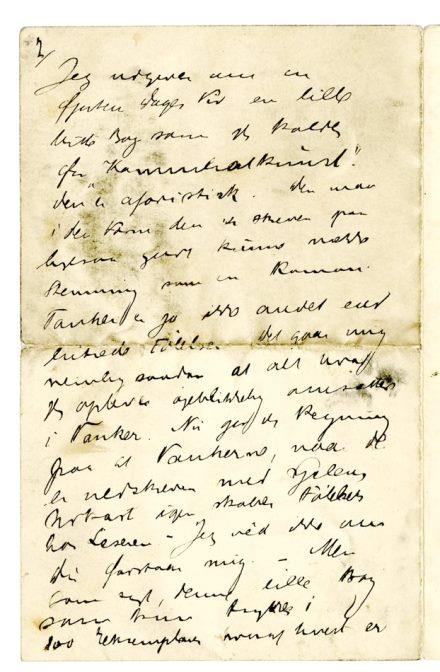 2/
Jeg udgiver om en
fjorten Dages Tid en lille
Bog som jeg kalder
for "Kammeratkunst".
den er aforistisk. den maa
i den Form den er skreven paa
ligesaa godt kunne vække
Stemning som en Roman.
Tanker er jo ikke andet end
Følelser det gaar mig
nemlig saadan at alt hvad
jeg oplever øjeblikkelig omsættes
i Tanker. Nu gør jeg Regning
paa at Tankerne, naar de
er nedskreven med
igen skaber Følelser
hos Læseren – Jeg véd ikke om
du forstaar mig. – Men
som sagt, denne lille Bog
som kun trykkes i
100 Exemplarer hvoraf hvert er